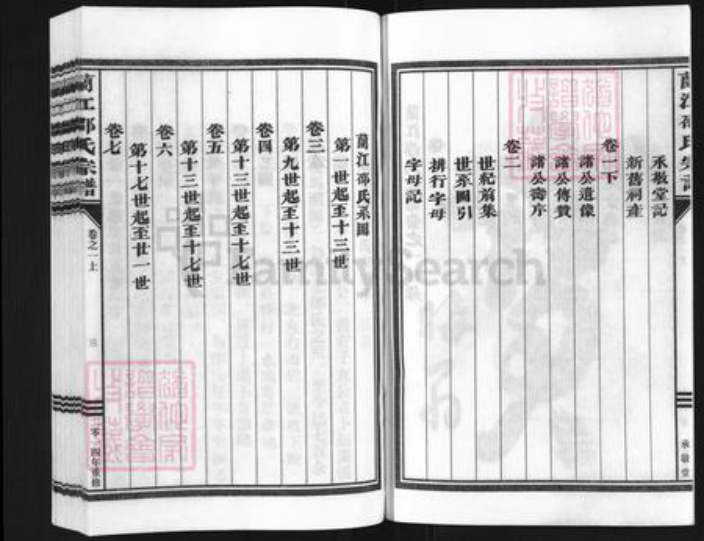 蘭江邵氏宗譜
承敬堂記
新舊祠產
卷一下
諸公遺像
諸公傳贊
諸公壽序
卷二
世紀前集
世系圖引
排行字母
字母記
承敬堂
蘭江邵氏系圖
第一世起至十三世
卷三
第九世起至十三世
卷四
第十三世起至十七世
卷五
第十三世起至十七世
卷六
第十七世起至廿一世
卷七
蘭江邵氏宗譜
卷之一上
二零一四年重修
FamilySearch